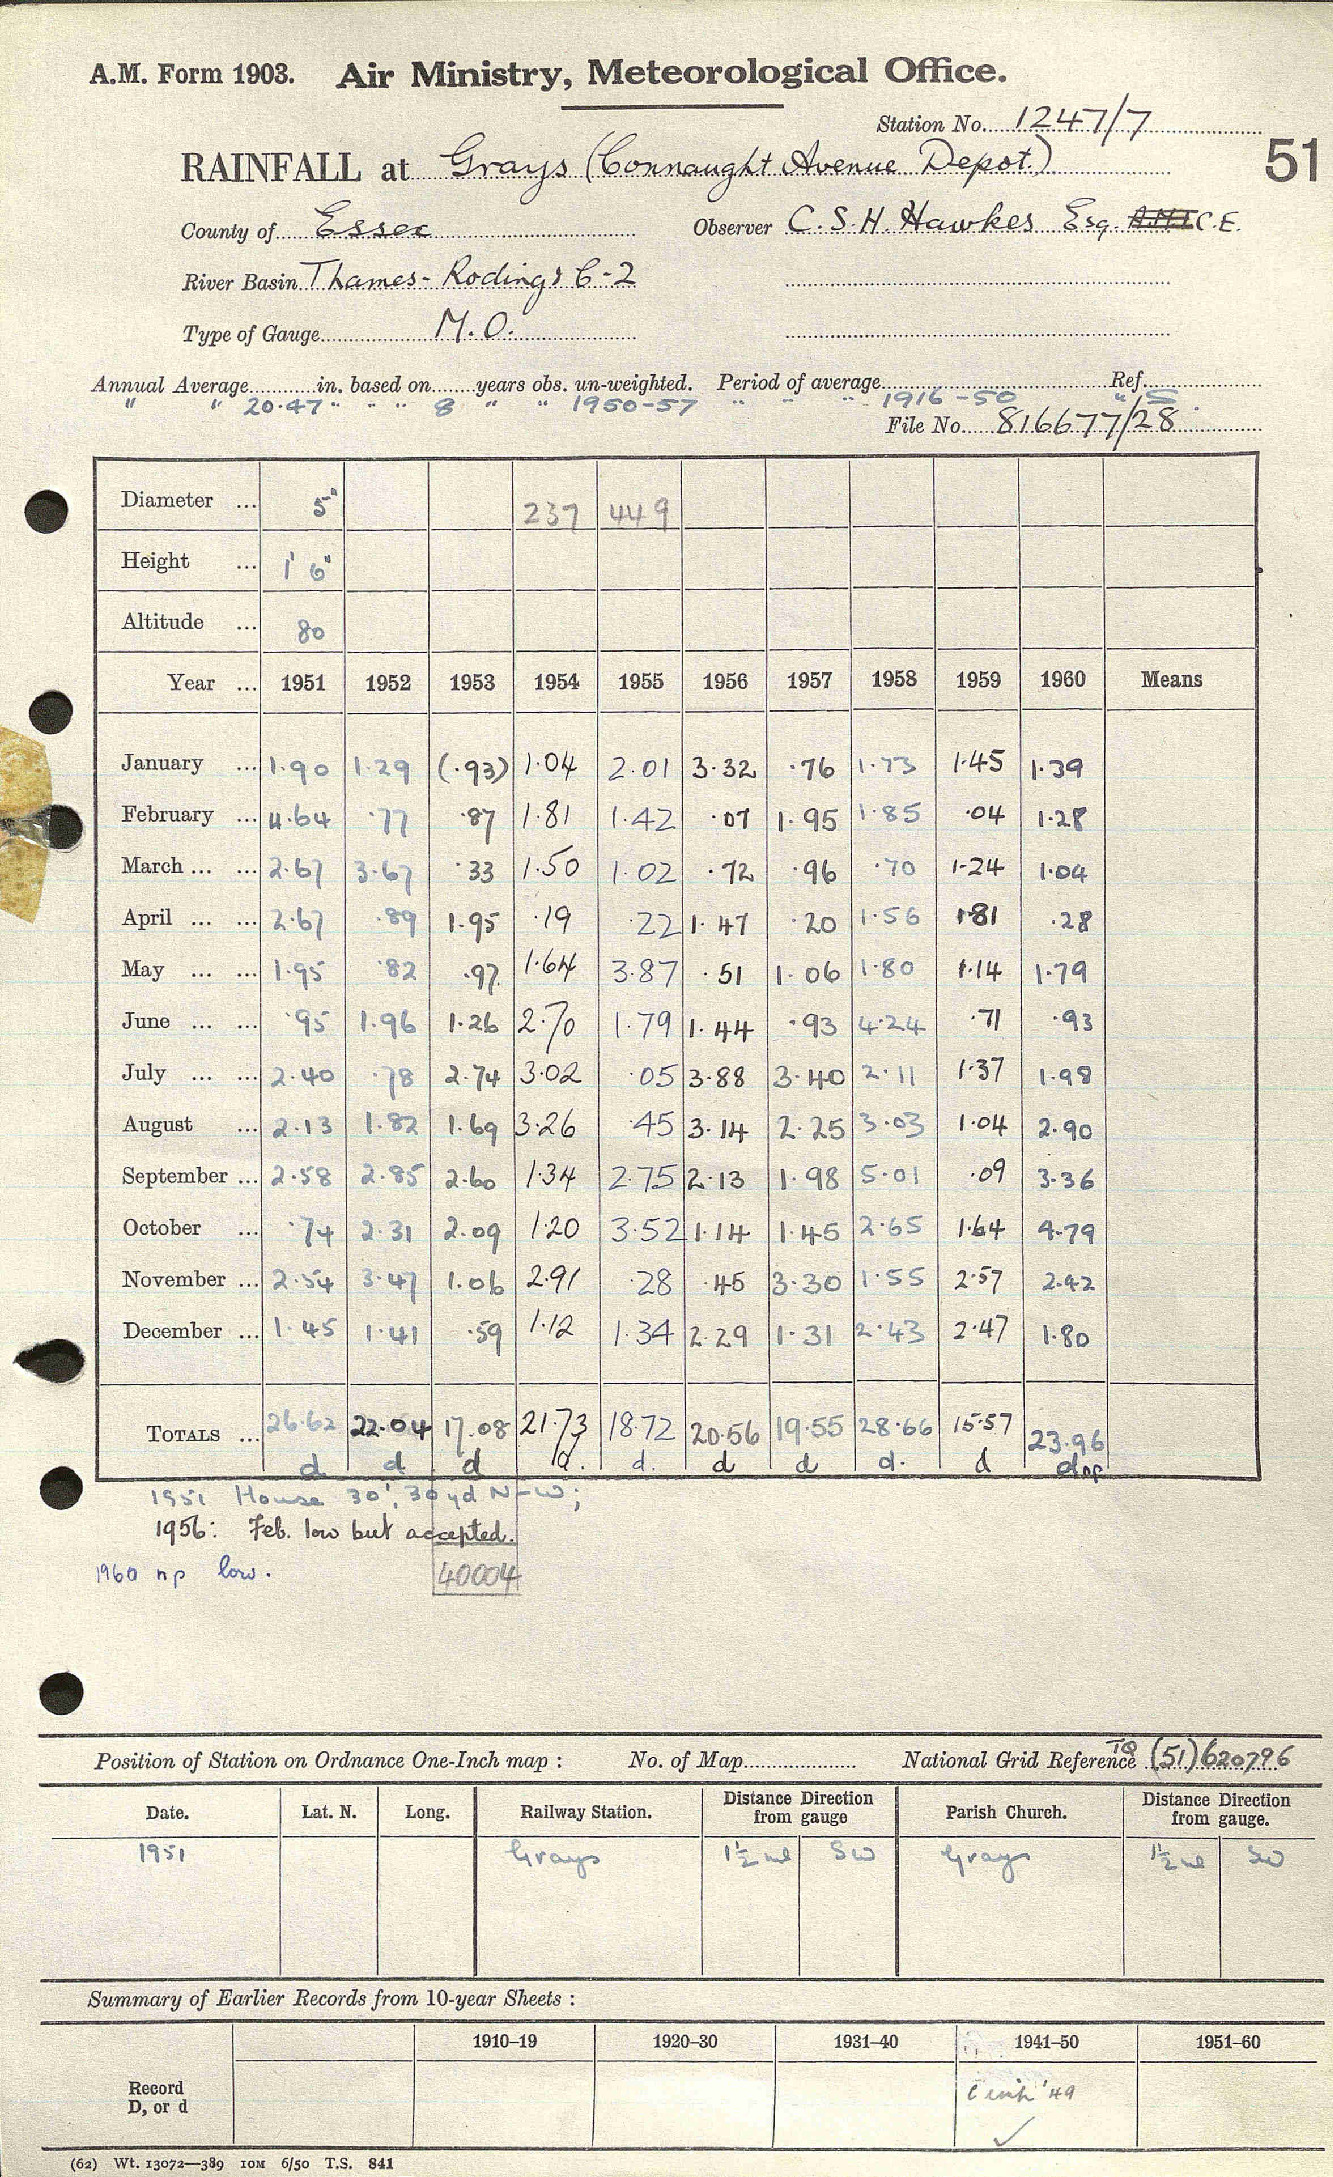 A.M. Form 1903. Air Ministry, Meteorological Office.
Station No. 1247/7
51
RAINFALL at Grays (Connaught Avenue Depot.)
County of Essex Observer C.S.H. Hawkes Esq. C.E.
River Basin Thames-Roding & C-2
Type of Gauge M.O.
Annual Average in. based on years obs. un-weighted. Period of average Ref.
" " 20.47 " " " 8 " " 1950-57 " " " 1916-50 " S
File No. 816677/28
Diameter ... 5" 237 449
Height ... 1' 6"
Altitude ... 80
Year ... 1951 1952 1953 1954 1955 1956 1957 1958 1959 1960 Means
January ... 1.90 1.29 (.93) 1.04 2.01 3.32 .76 1.73 1.45 1.39
February ... 4.64 .77 .87 1.81 1.42 .07 1.95 1.85 .04 1.28
March ... ... 2.67 3.67 .33 1.50 1.02 .72 .96 .70 1.24 1.04
April ... ... 2.67 .89 1.95 .19 .22 1.47 .20 1.56 1.81 .28
May ... ... 1.95 .82 .97 1.64 3.87 .51 1.06 1.80 1.14 1.79
June ... ... .95 1.96 1.26 2.70 1.79 1.44 .93 4.24 .71 .93
July ... ... 2.40 .78 2.74 3.02 .05 3.88 3.40 2.11 1.37 1.98
August ... 2.13 1.82 1.69 3.26 .45 3.14 2.25 3.03 1.04 2.90
September ... 2.58 2.85 2.60 1.34 2.75 2.13 1.98 5.01 .09 3.36
October ... .74 2.31 2.09 1.20 3.52 1.14 1.45 2.65 1.64 4.79
November ... 2.54 3.47 1.06 2.91 .28 .45 3.30 1.55 2.57 2.42
December ... 1.45 1.41 .59 1.12 1.34 2.29 1.31 2.43 2.47 1.80
TOTALS ... 26.62 22.04 17.08 21.73 18.72 20.56 19.55 28.66 15.57 23.96
d d d d. d. d d d. d d np
1951 House 30', 30yd N-W;
1956: Feb. low but accepted.
1960 np low.
40004
Position of Station on Ordnance One-Inch map : No. of Map National Grid Reference TQ (51) 620796
Date. Lat. N. Long. Railway Station. Distance Direction from gauge Parish Church. Distance Direction from gauge.
1951 Grays 1½ ml SW Grays 1½ ml SW
Summary of Earlier Records from 10-year Sheets :
1910–19 1920–30 1931–40 1941–50 1951–60
Record D, or d '49
(62) Wt. 13072—389 10M 6/50 T.S. 841